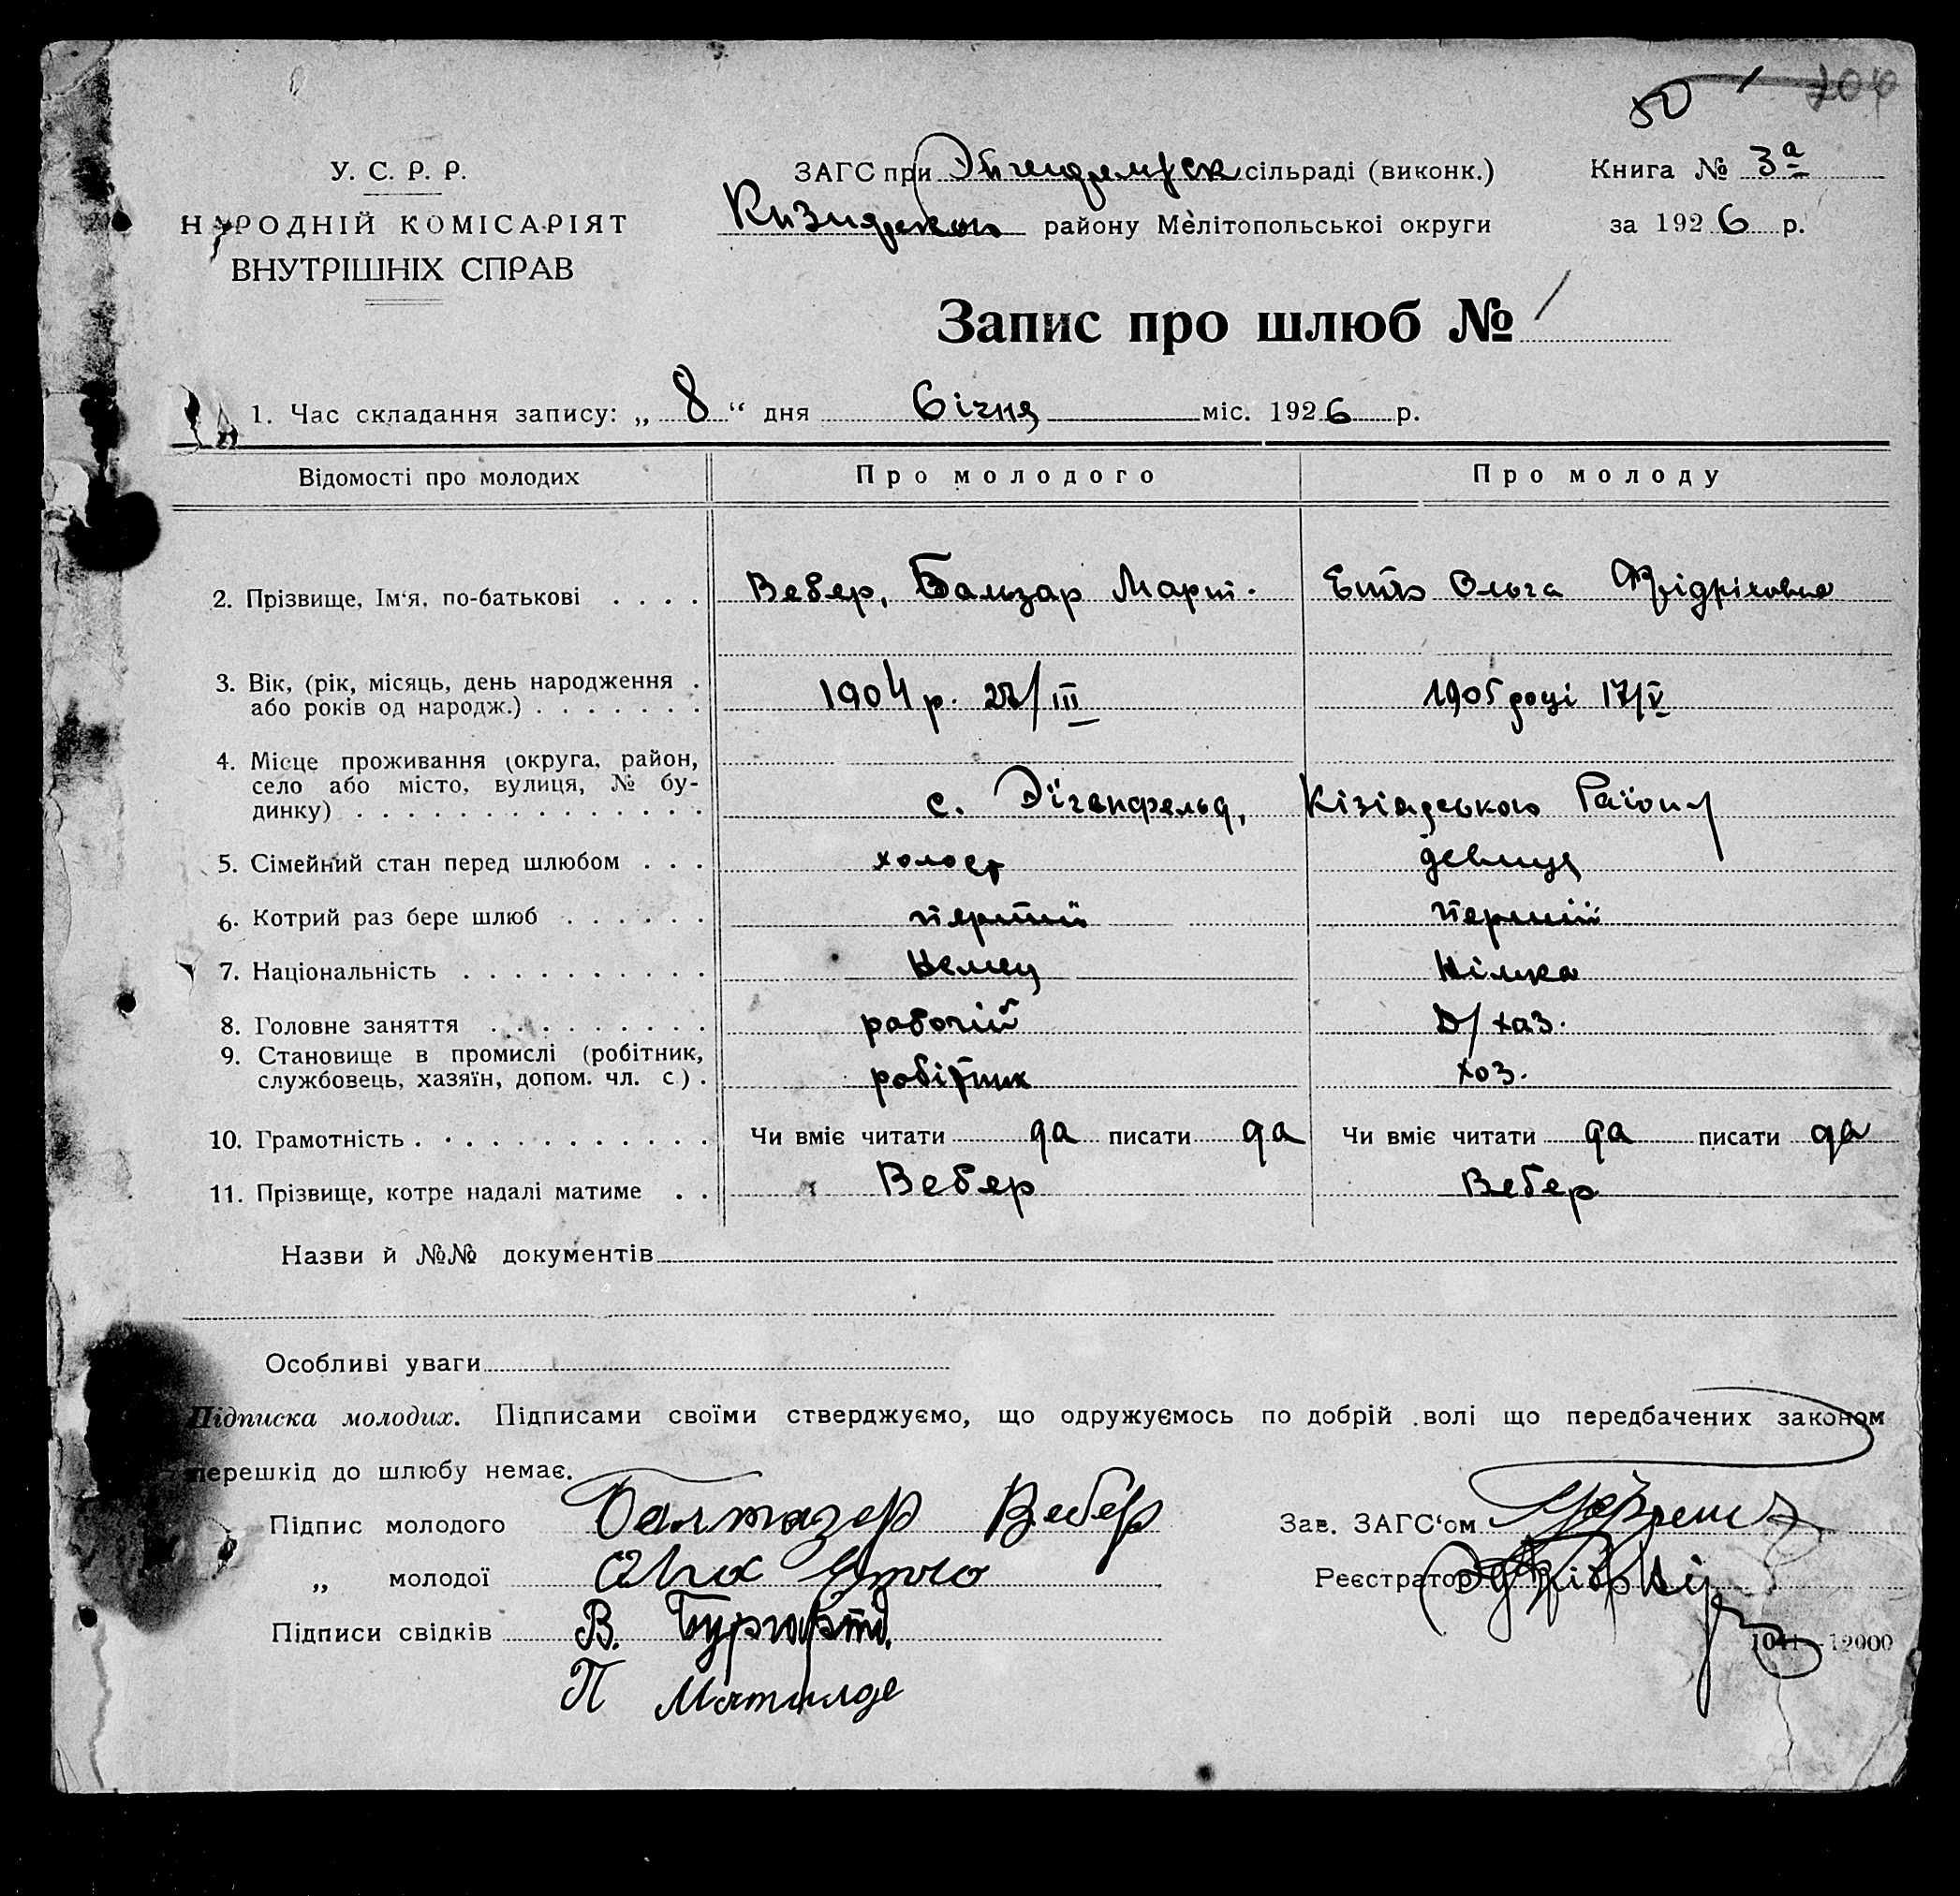 50 1 204
У. С. Р. Р.
НАРОДНІЙ КОМІСАРІЯТ
ВНУТРІШНІХ СПРАВ
ЗАГС при сільраді (виконк.)
району Мелітопольської округи
Книга № 3а
за 1926 р.
Запис про шлюб № 1
1. Час складання запису: „ 8 “ дня Січня міс. 1926 р.
Відомості про молодих Про молодого Про молоду
2. Прізвище, Ім‘я, по-батькові . . . . Вебер, Бальзар Март. Ольга Фрідріховна
3. Вік, (рік, місяць, день народження .
або років од народж.) . . . . . . . 1904 р. /III 1905 році 17/V
4. Місце проживання (округа, район,
село або місто, вулиця, № бу-
динку) . . . . . . . . . . . . . . с. Діґенфельд, Кізіярського Району
5. Сімейний стан перед шлюбом . . . холост девиця
6. Котрий раз бере шлюб . . . . . . перший перший
7. Національність . . . . . . . . . . Немец Німка
8. Головне заняття . . . . . . . . . рабочій Д/хаз.
9. Становище в промислі (робітник,
службовець, хазяїн, допом. чл. с.) . робітник хоз.
10. Грамотність . . . . . . . . . . . . Чи вміє читати да писати да Чи вміє читати да писати да
11. Прізвище, котре надалі матиме . . Вебер Вебер
Назви й №№ документів
Особливі уваги
Підписка молодих. Підписами своїми стверджуємо, що одружуємось по добрій волі що передбачених законом
перешкід до шлюбу немає.
Підпис молодого Балтазер Вебер Зав. ЗАГС‘ом
„ молодої Реєстратор
Підписи свідків В. Бургардт.
1041—12000
П Матилде